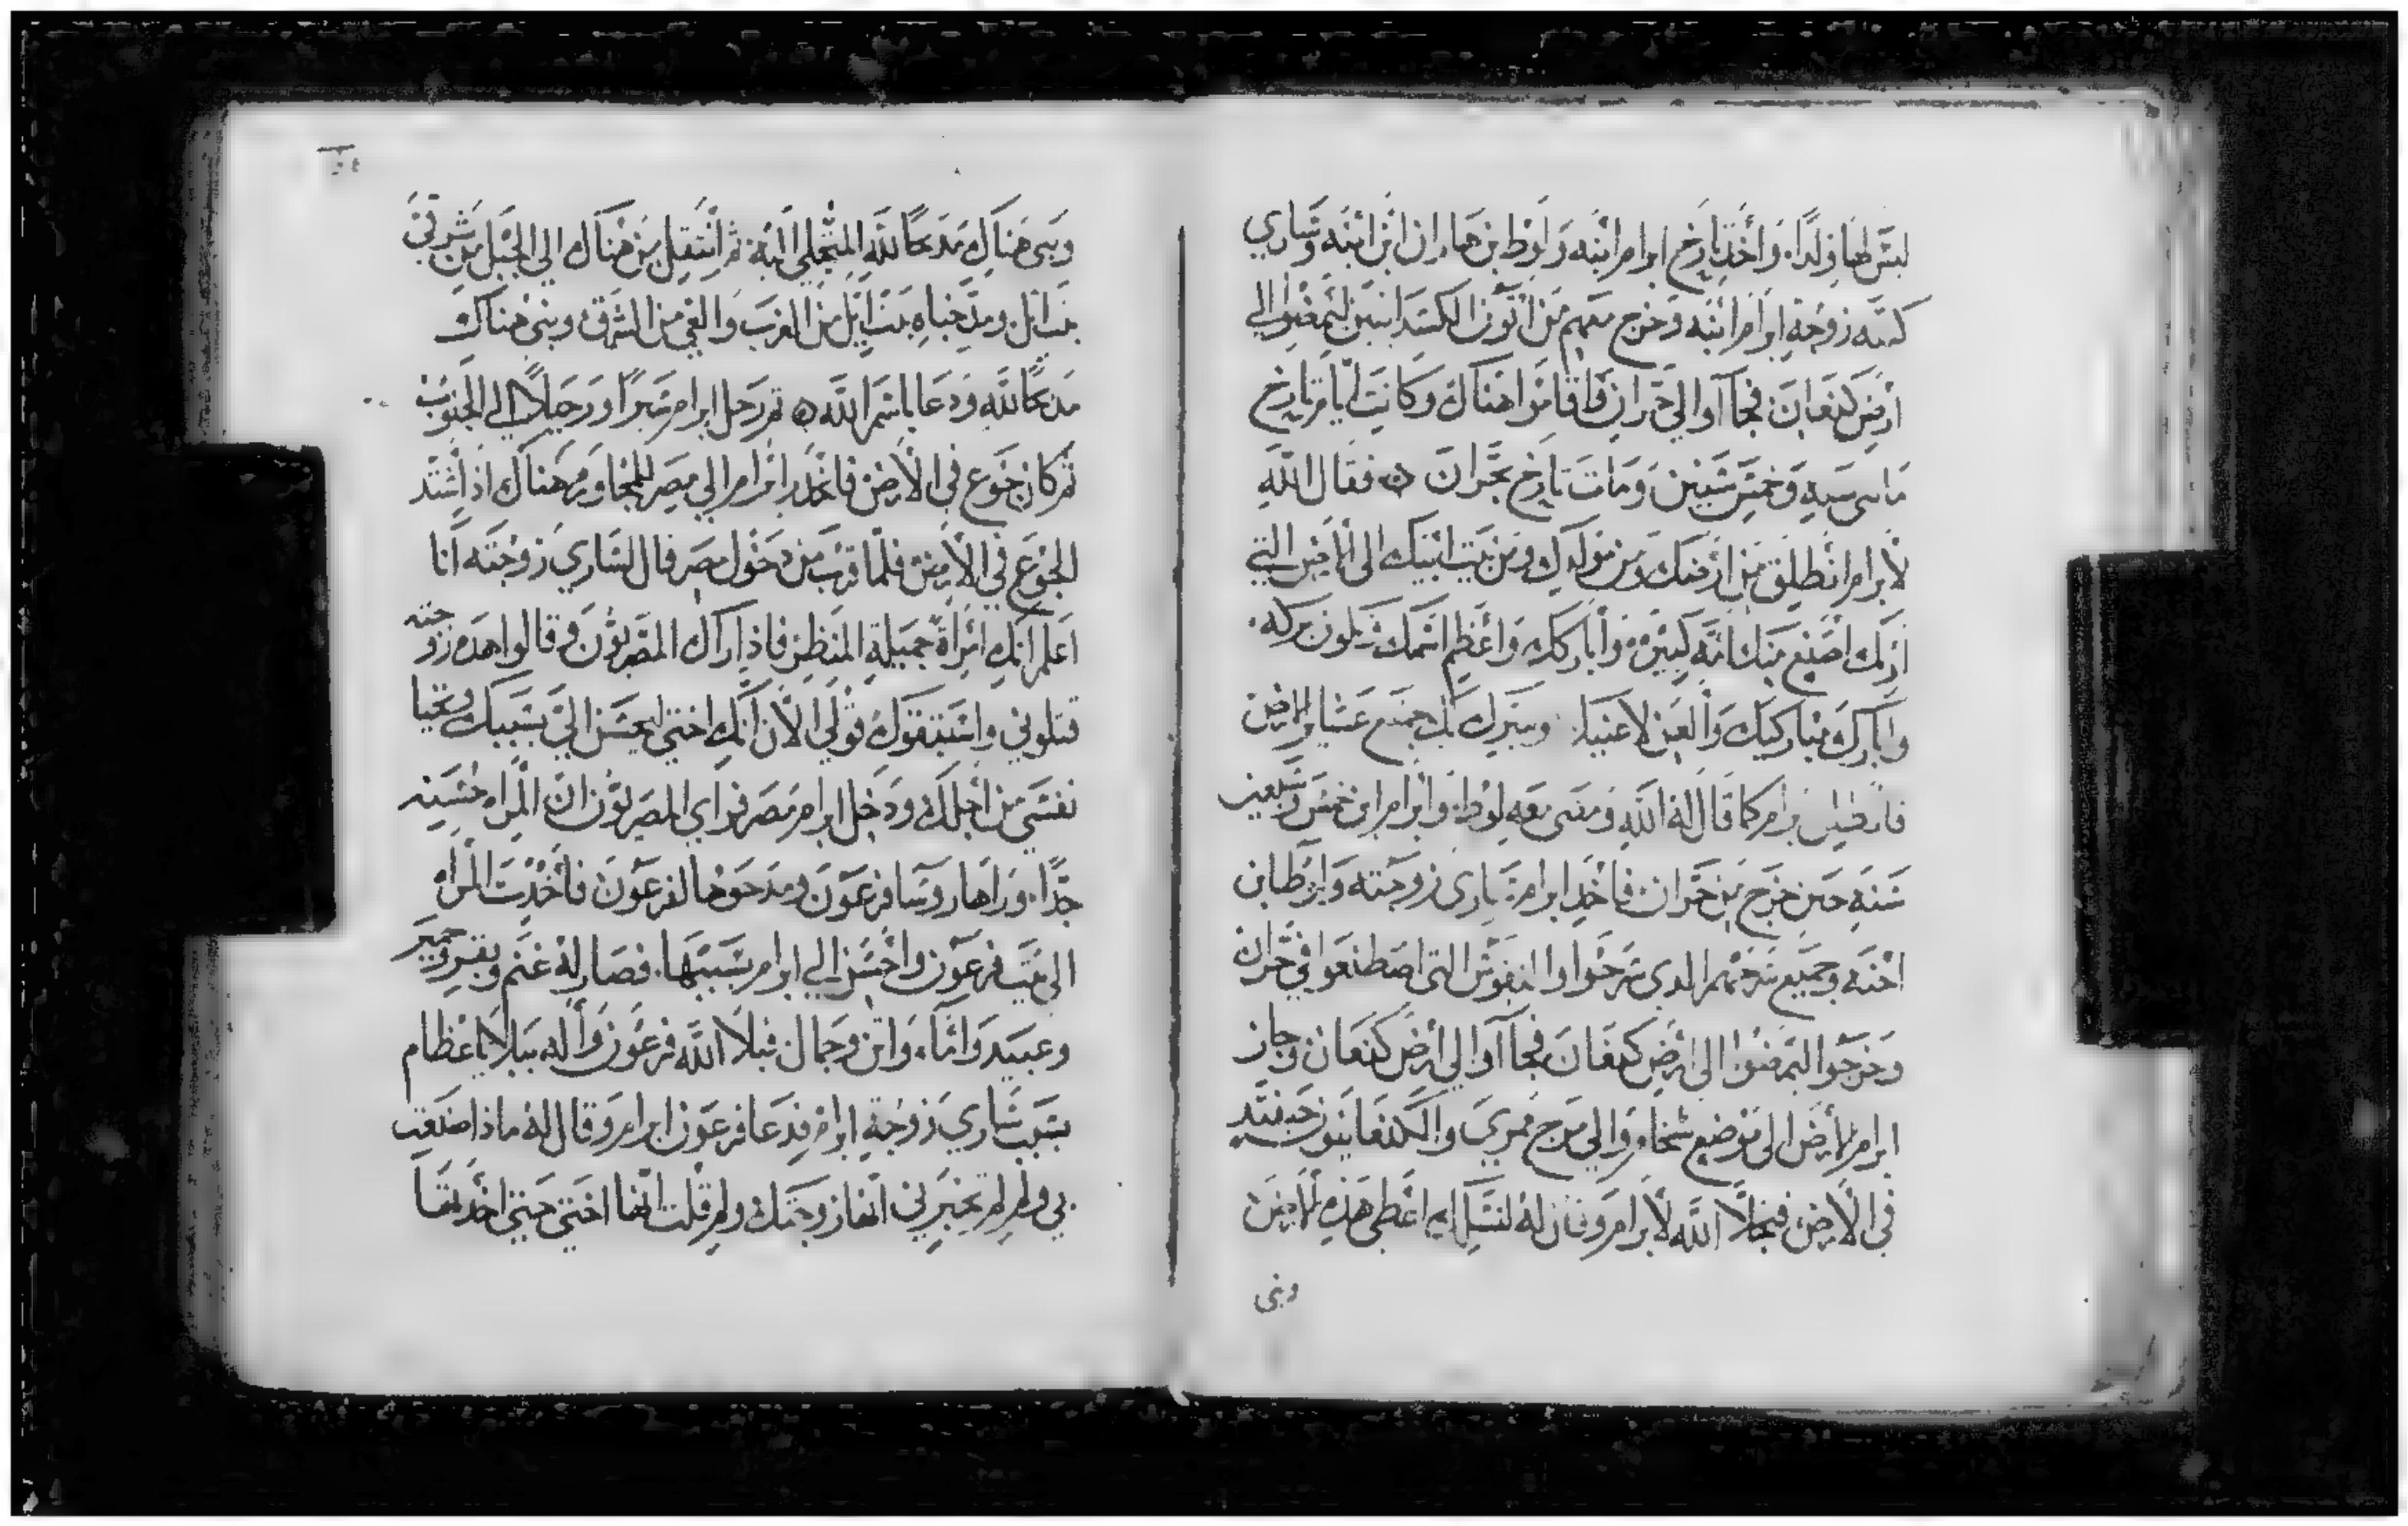 ليس لها ولدا، وأخذ تارخ ابرام ابنه ولوط بن هاران ابن ابنه وساري
كنته زوجة ابرام ابنه وخرج معهم من اتون الكسدانيين ليمضوا الي
أرض كنعان فجاآوا الي حران فاقاموا هناك وكانت ايام تارخ
ماىىى سىه وخمس سنين ومات تارخ بحران ۞ فقال الله
لأبرام انطلق من ارضك ومن مولدك ومن بيت ابيك الى الأرض التي
اريك اصنع منك امه كبيره وأباركك واعظم اسمك وتكون بركه
وابارك مباركيك والعن لاعنيك وىتبرك بك جميع عشاير الارض
فانطلق ابرام كما قال له الله ومضى معه لوط، وابرام ابن خمس وسبعين
سنه حين خرج من حران فاخذ ابرام ساري زوجته ولوطا بن
اخته وجميع سرحهم الدي سرحوا والنفوس التي اصطنعوا في حران
وخرجوا ليمضوا الى ارض كنعان فجاآوا الي أرض كنعان وجاز
ابرام الأرض الى موضع شخام والي مرج ممري والكنعانيون حينئد
في الأرض فتجلا الله لأبرام وقال له لنسلك اعطي هذه الأرض
وبنى
وبنى هناك مدبحا لله المتجلي اليه ثم انتقل من هناك الي الجبل من شرقي
بيت ايل ومد خباه بيت ايل من الغرب والغي من الشرق وبنى هناك
مدبحا لله ودعا باسم الله ۞ ثم رحل ابرام سيرا ورحيلا الي الجنوب
ثم كان جوع في الأرض فانحدر ابرام الي مصر للمجاوره هناك اذ اشتد
الجوع في الأرض فلما قرب من دخول مصر قال لساري زوجته انا
اعلم انك امراة جميلة المنظر فاذا راك المصريون وقالوا هده زوجته
قتلوني واستبقوك قولي الآن انك اختي ليحسن الي بسببك وتحيا
نفسي من اجلك ودخل ابرام مصر فراي المصريون ان المراه حسنه
جدا، وراها روسا فرعون ومدحوها لفرعون فأخدت المراه
الى بيت فرعون واحسن الي ابرام بسببها، فصار له غنم وبقر وحمير
وعبيد واماء، واتن وجمال فبلا الله فرعون وآله ببلايا عظام
بسبب ساري زوجة ابرام فدعا فرعون ابرام وقال له ماذا صنعت
بي ولم لم تخبرني انها زوجتك ولم قلت انها اختي حتى اخدتها